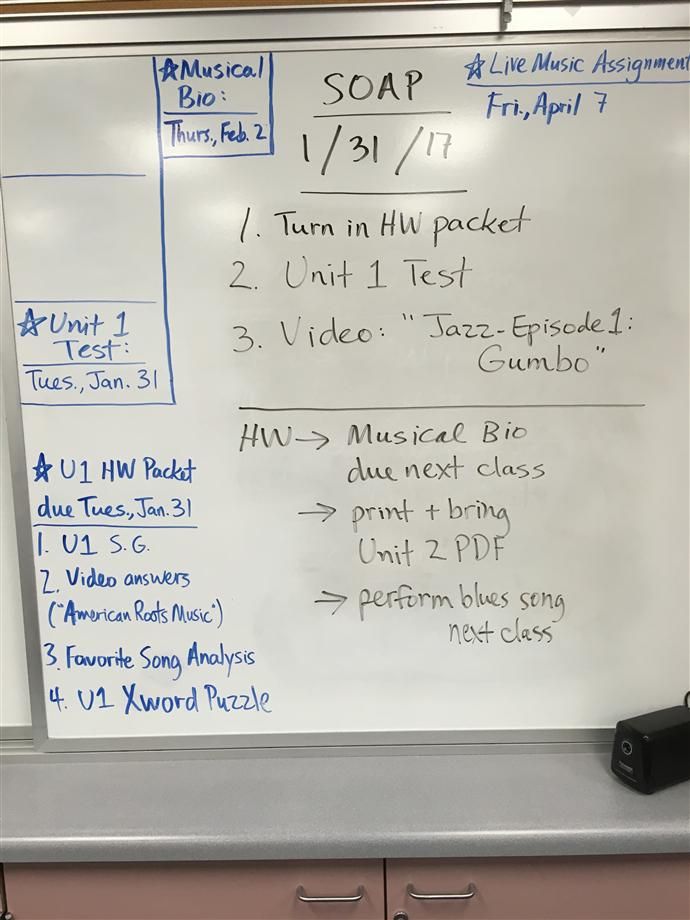 ☆Musical
Bio:
Thurs., Feb. 2
☆Unit 1
Test:
Tues., Jan. 31
☆ U1 HW Packet
due Tues., Jan. 31
1. U1 S.G.
2. Video answers
("American Roots Music")
3. Favorite Song Analysis
4. U1 Xword Puzzle
SOAP
1/31/17
1. Turn in HW packet
2. Unit 1 Test
3. Video: "Jazz-Episode 1:
Gumbo"
HW→ Musical Bio
due next class
→ print + bring
Unit 2 PDF
→ perform blues song
next class
☆Live Music Assignment
Fri., April 7